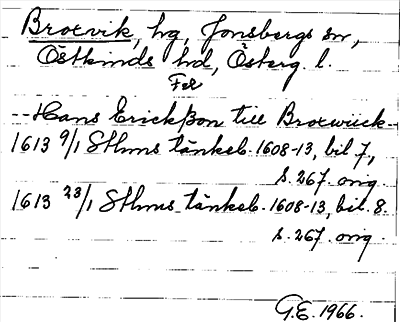 Broxvik, hg, Jonsbergs sn,
Östkinds hd, Österg. l.
Fel
--Hans Erickßon till Broxwiick--
1613 9/1 Sthms tänkeb. 1608-13, bil 7,
s. 267. orig.
1613 23/1 Sthms tänkeb. 1608-13, bil. 8.
s. 267. orig.
G.E. 1966.